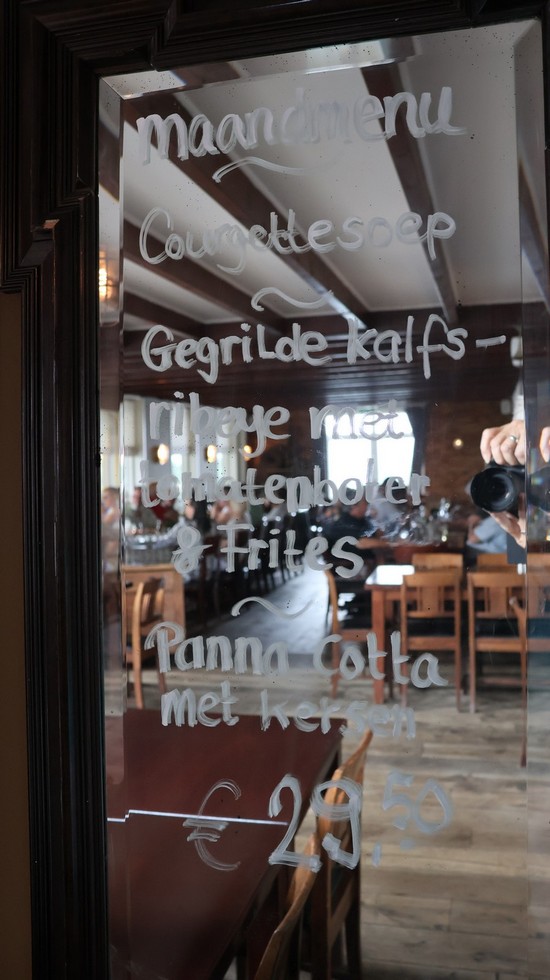 maandmenu
Courgettesoep
~
Gegrilde kalfs-
ribeye met
tomatenboter
& Frites
~
Panna Cotta
met kersen
€ 29,50